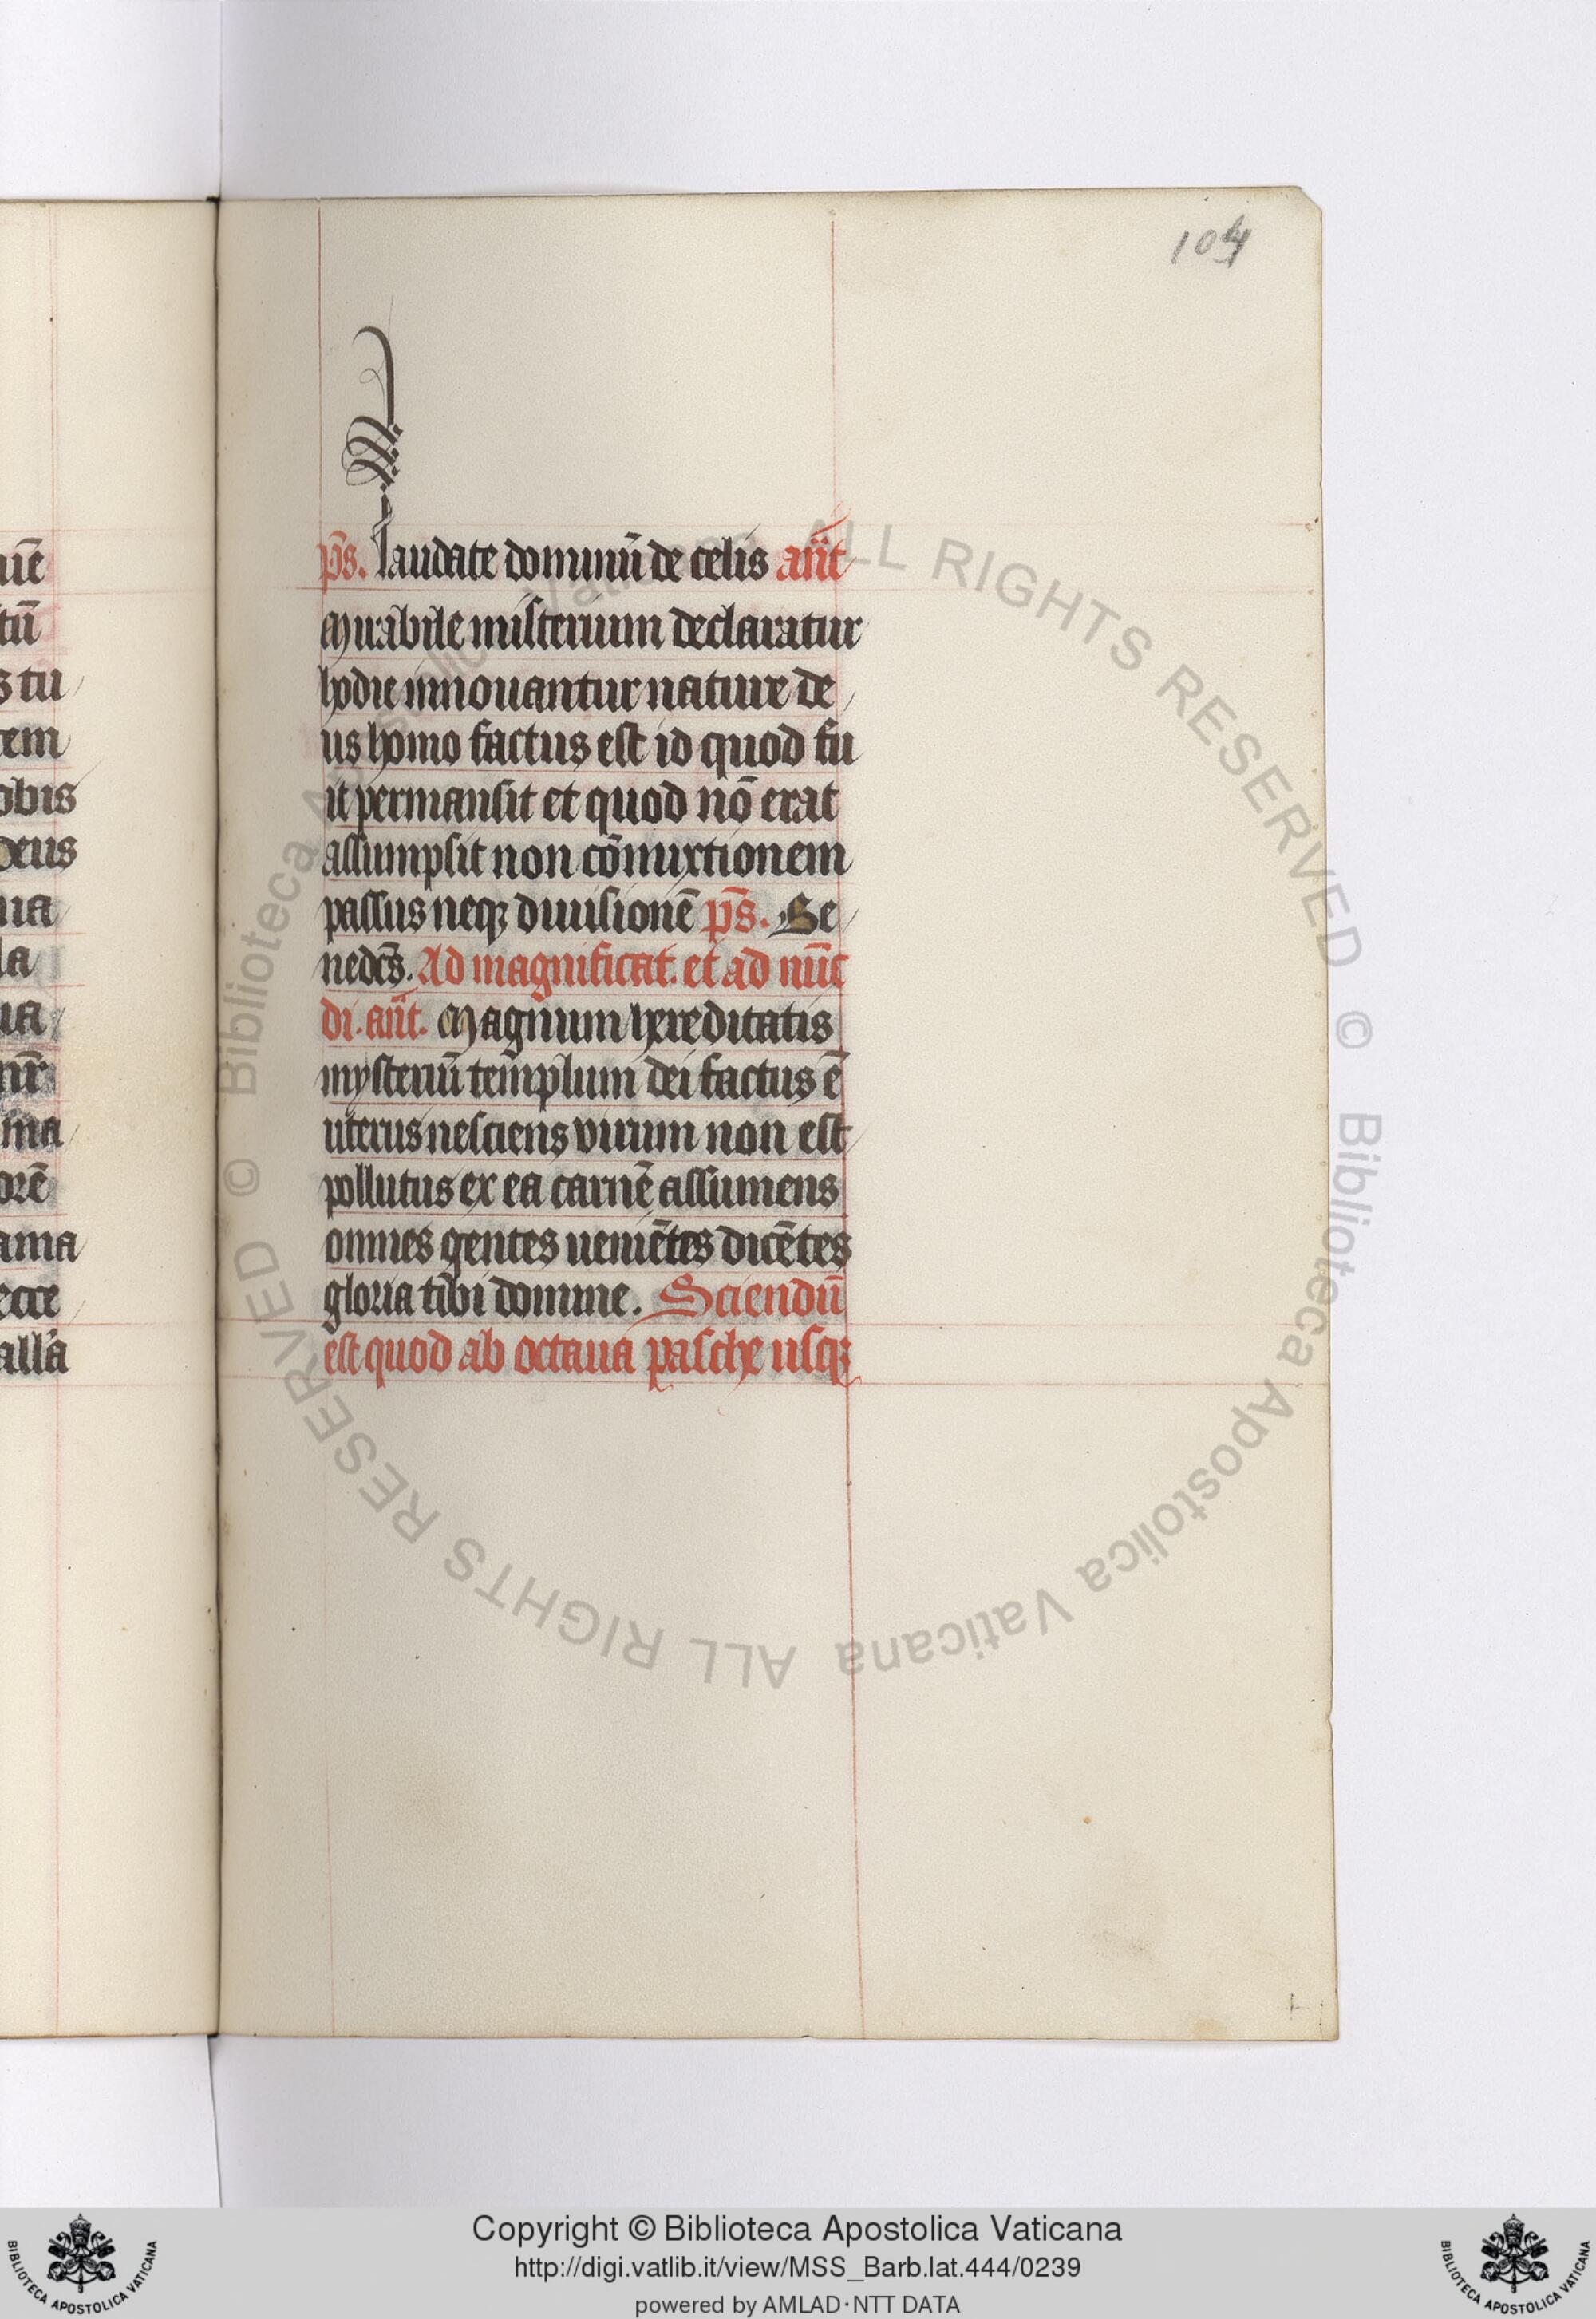 104
uē
tū
s tu
tem
obis
deus
ua
la
ua
nr̄
ma
orē
ama
ecce
alla
p̄s. laudate dominū de celis an̄t
Mirabile misterium declaratur
hodie innouantur nature de
us homo factus est id quod fu
it permansit et quod nō erat
assumpsit non cōmixtionem
passus neqꝫ diuisionē p̄s. Be
nedc̄s. Ad magnificat. et ad nūc
di. an̄t. Magnum hereditatis
mysteriū templum dei factus ē
uterus nesciens virum non est
pollutus ex ea carnē assumens
omnes gentes ueniētes dicētes
gloria tibi domine. Sciendū
est quod ab octaua pasche usqꝫ
© Biblioteca Apostolica Vaticana ALL RIGHTS RESERVED © Biblioteca Apostolica Vaticana ALL RIGHTS RESERVED
Copyright © Biblioteca Apostolica Vaticana
http://digi.vatlib.it/view/MSS_Barb.lat.444/0239
powered by AMLAD·NTT DATA
BIBLIOTECA APOSTOLICA VATICANA
BIBLIOTECA APOSTOLICA VATICANA